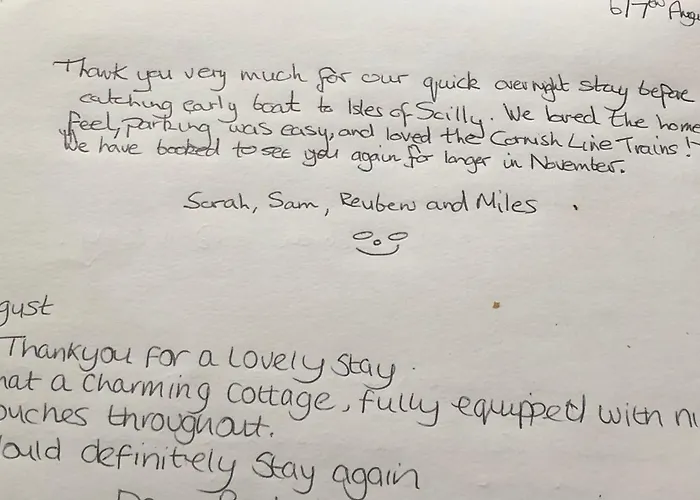 6/7th Augu
Thank you very much for our quick overnight stay before
catching early boat to Isles of Scilly. We loved the home
feel, parking was easy, and loved the Cornish Line Trains!
We have booked to see you again for longer in November.
Sarah, Sam, Reuben and Miles
gust
Thankyou for a lovely stay.
hat a charming cottage, fully equipped with ni
ouches throughout.
ould definitely stay again